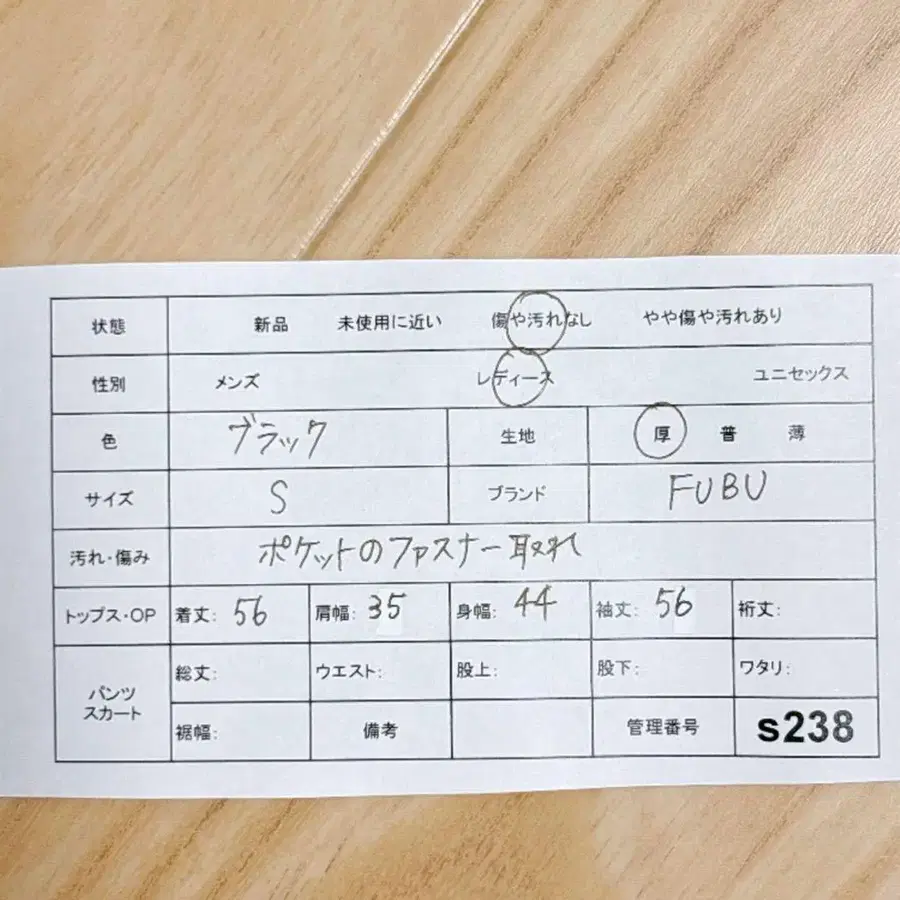 状態 新品 未使用に近い 傷や汚れなし やや傷や汚れあり
性別 メンズ レディース ユニセックス
色 ブラック 生地 厚 普 薄
サイズ S ブランド FUBU
汚れ・傷み ポケットのファスナー取れ
トップス・OP 着丈: 56 肩幅: 35 身幅: 44 袖丈: 56 裄丈:
パンツ スカート 総丈: ウエスト: 股上: 股下: ワタリ:
裾幅: 備考 管理番号 s238